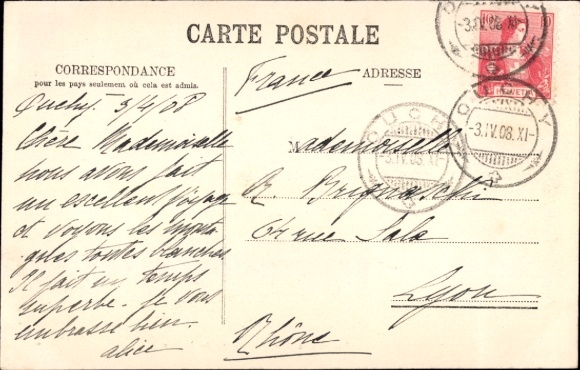 CARTE POSTALE
CORRESPONDANCE
pour les pays seulement où cela est admis.
ADRESSE
France
Ouchy 3/4/08
Chère Mademoiselle
nous avons fait
un excellent voyage
et voyons les monta
gnes toutes blanches
Il fait un temps
superbe. Je vous
embrasse bien.
alice
Mademoiselle
R.
64 rue Sala
Lyon
Rhône
10 10
HELVETIA
OUCHY
-3.IV.08.XI-
OUCHY
-3.IV.08.XI-
OUCHY
-3.IV.08.XI-